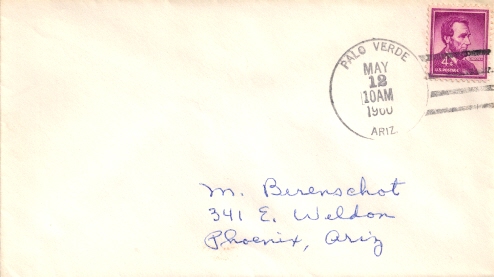 PALO VERDE
MAY
12
10AM
1960
ARIZ.
4¢
U.S. POSTAGE
M. Berenschot
341 E. Weldon
Phoenix, Ariz